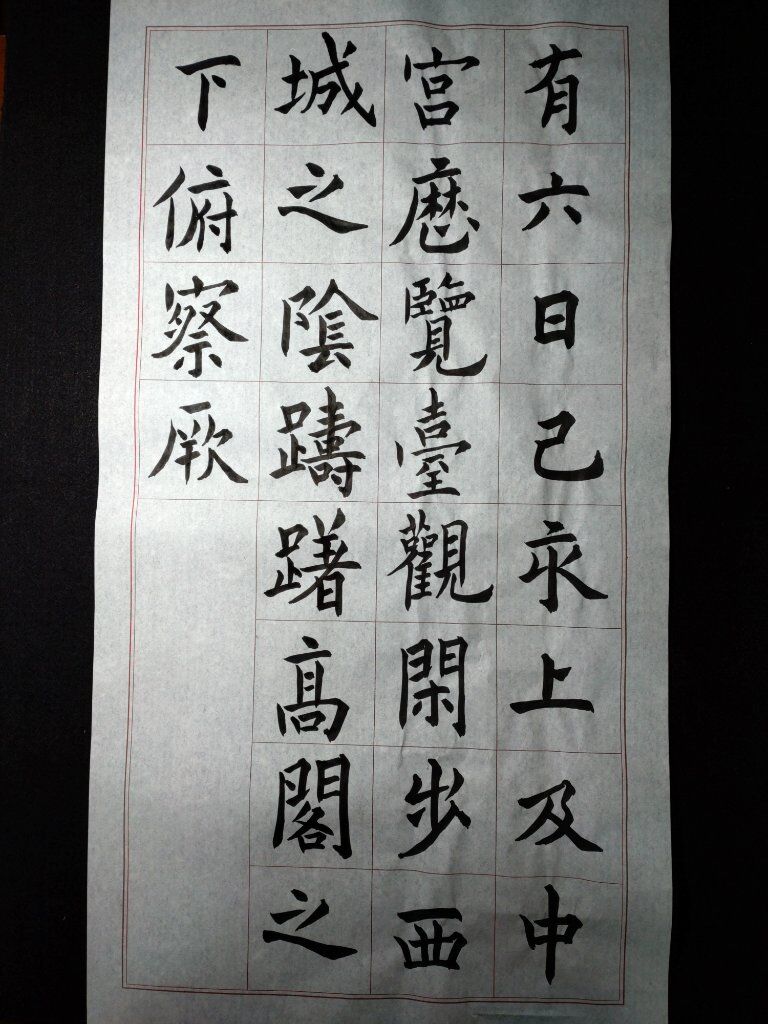 有六日己亥上及中
宮歷覽臺觀閑步西
城之陰躊躇髙閣之
下俯察厥